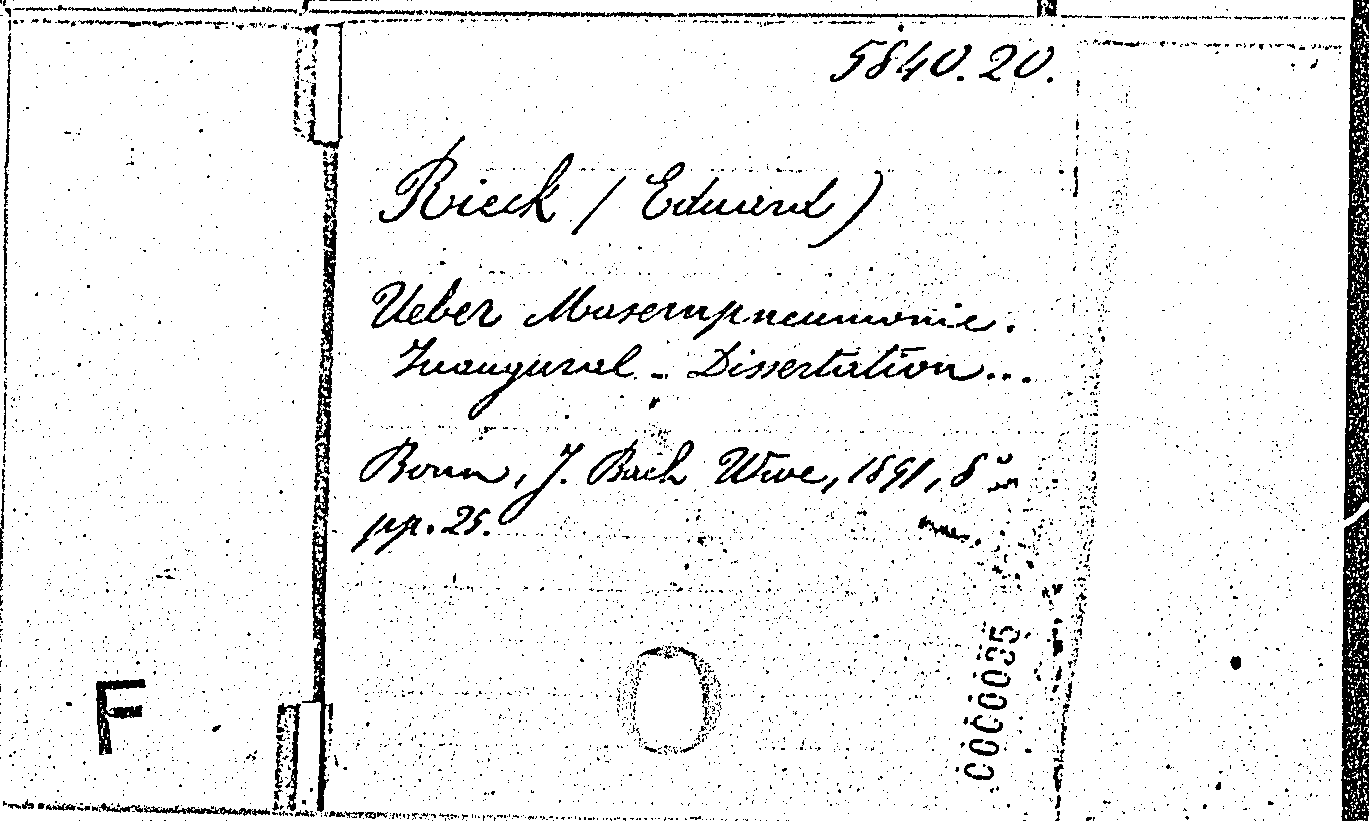 5840.20.
Rieck (Eduard)
Ueber Masernpneumonie.
Inaugural-Dissertation...
Bonn, J. Bach Wwe, 1891, 8º
pp. 25.
F
0000035